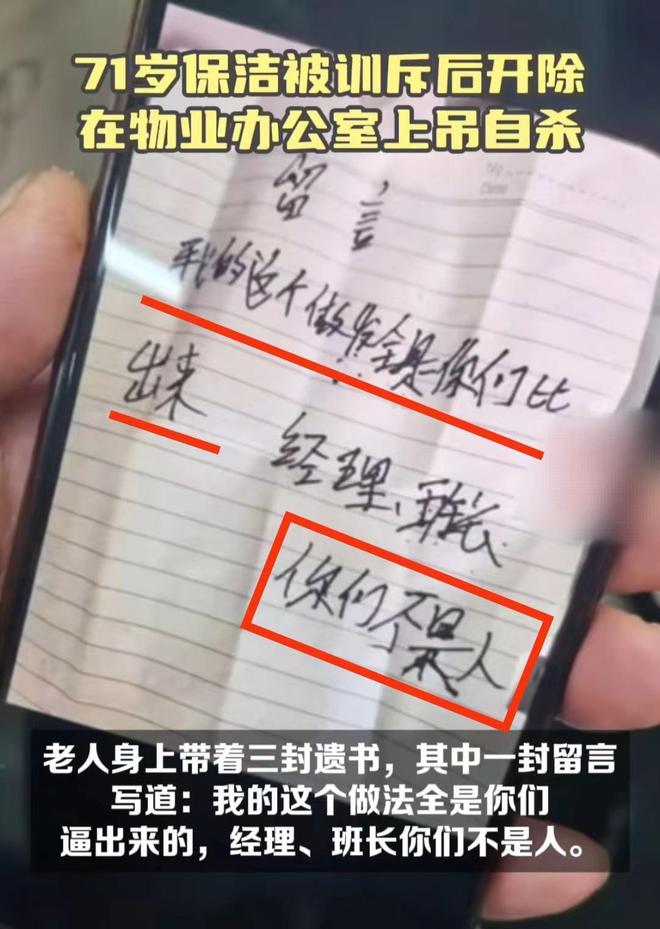 71岁保洁被训斥后开除
在物业办公室上吊自杀
No
Date
留言
我的这个做发全是你们比
出来
经理、班长
你们不是人
老人身上带着三封遗书，其中一封留言
写道：我的这个做法全是你们
逼出来的，经理、班长你们不是人。